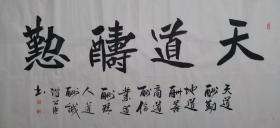 天道醻懃
天道
酬勤
地道
酬善
商道
酬信
業道
酬精
人道
酬誠
书